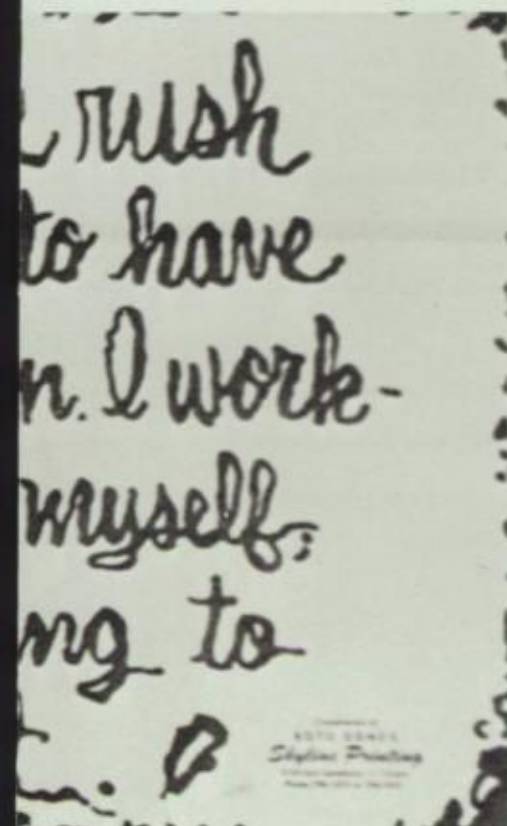 rush
to have
n. I work-
myself;
ng to
Skyline Printing